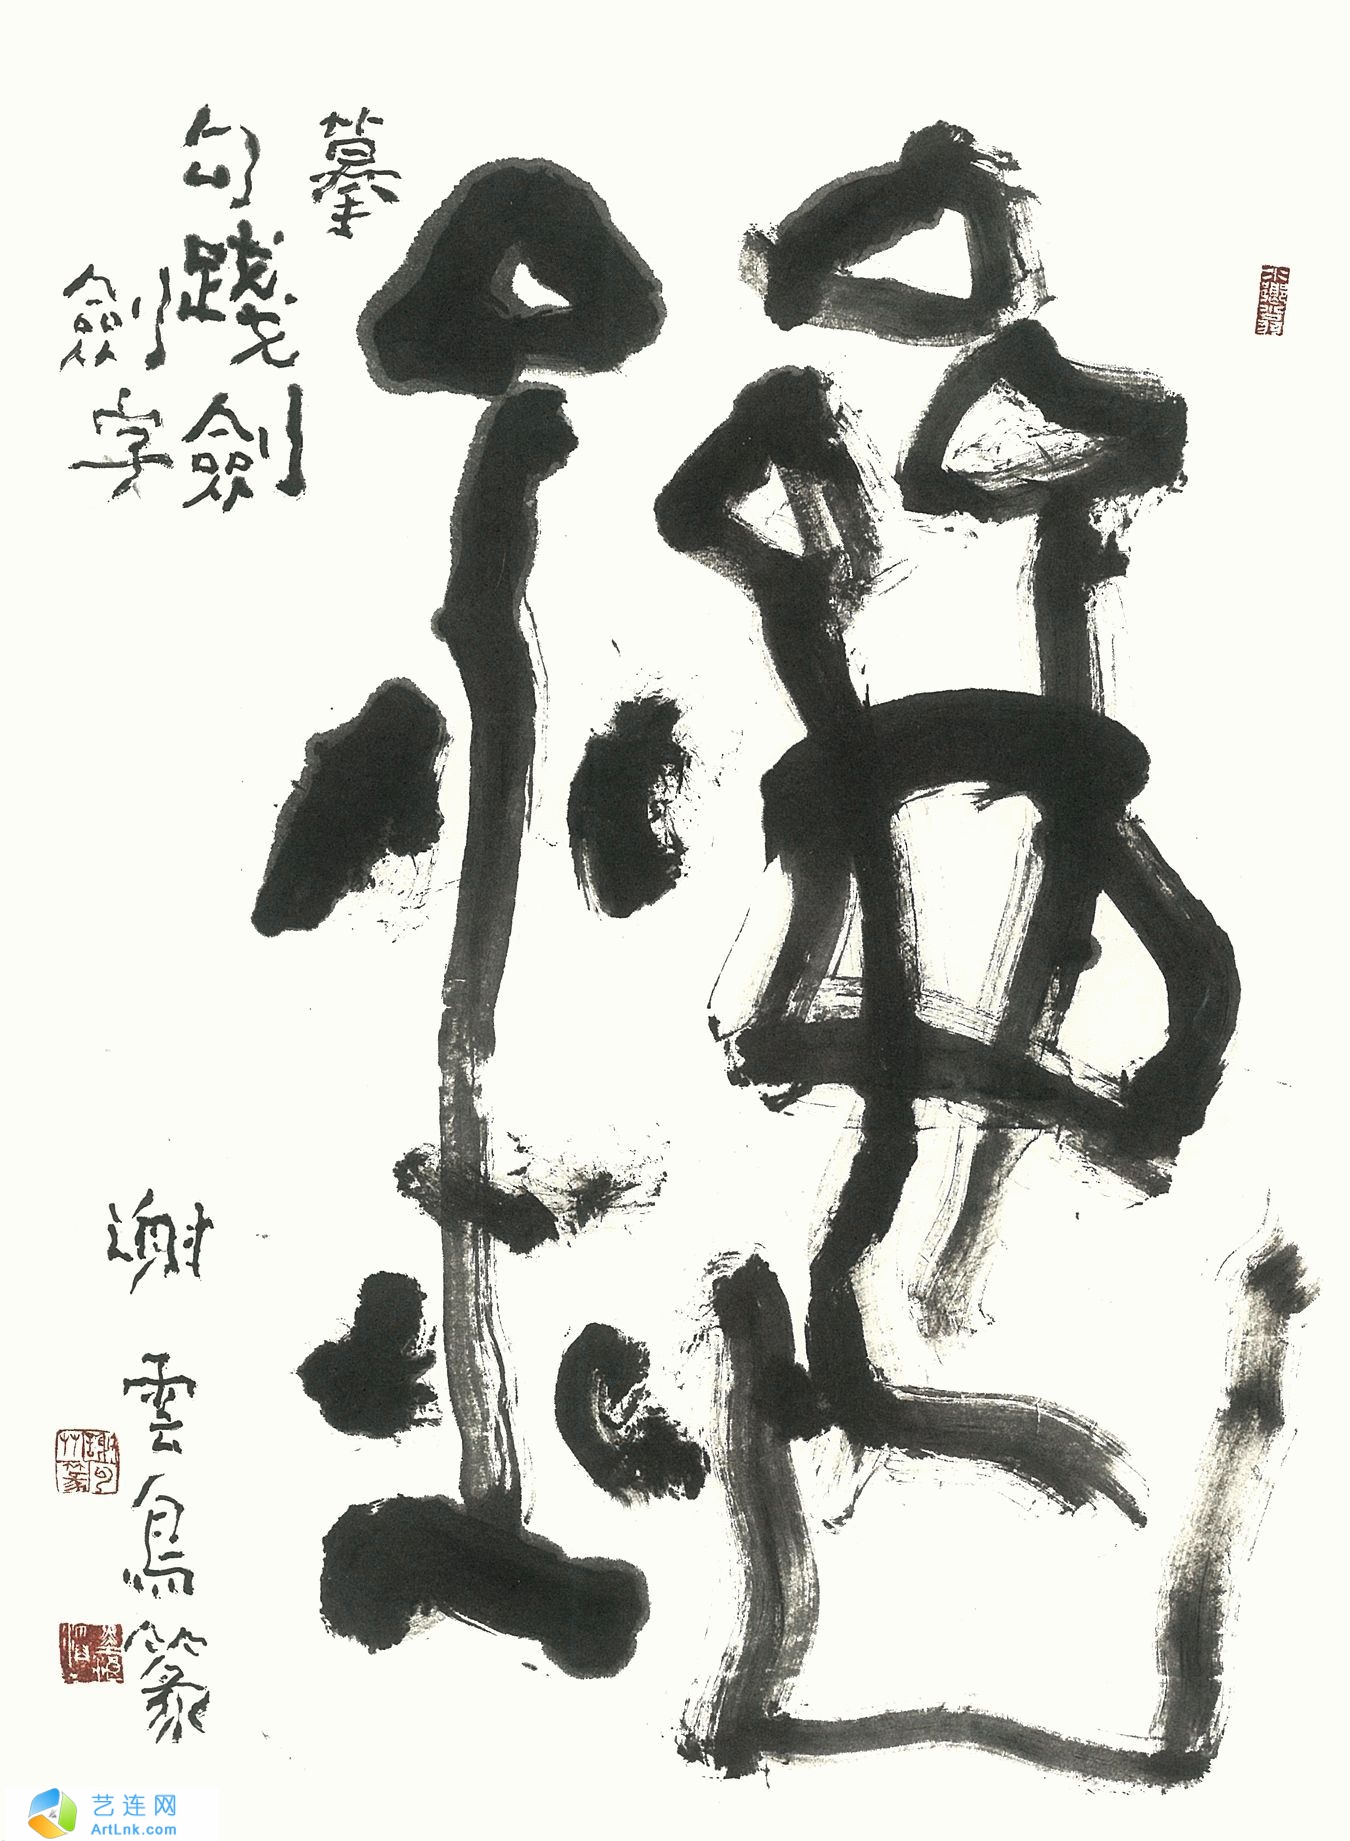 摹
勾踐劍
劍字
謝雲鳥篆
艺连网
ArtLnk.com